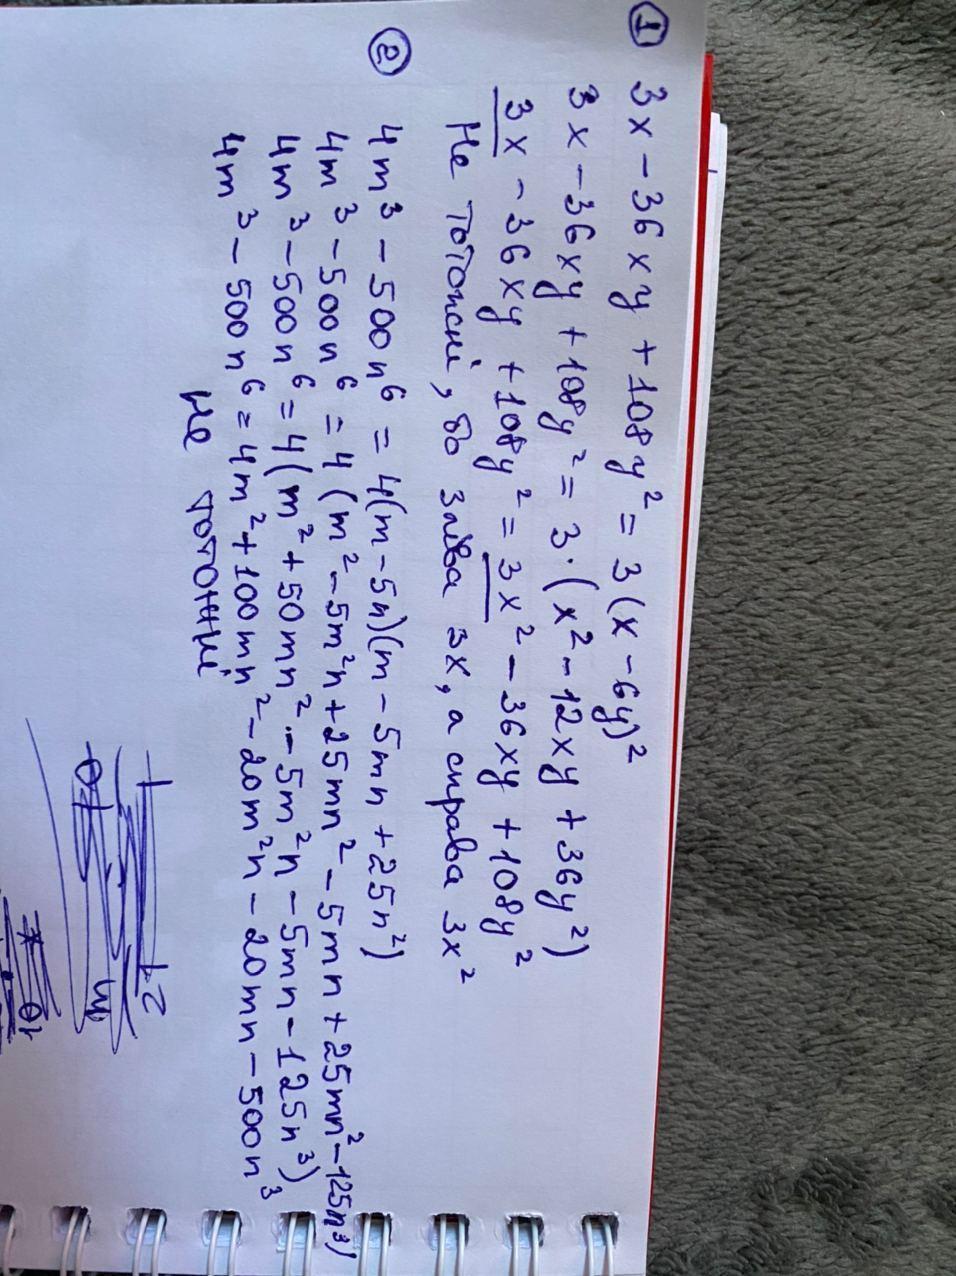 ① 3x - 36xy + 108y² = 3(x - 6y)²
3x - 36xy + 108y² = 3·(x² - 12xy + 36y²)
3x - 36xy + 108y² = 3x² - 36xy + 108y²
Не тотожні, бо зліва 3x, а справа 3x²
② 4m³ - 500n⁶ = 4(m - 5n)(m - 5mn + 25n²)
4m³ - 500n⁶ = 4(m² - 5m²n + 25mn² - 5mn + 25mn² - 125n³)
4m³ - 500n⁶ = 4(m² + 50mn² - 5m²n - 5mn - 125n³)
4m³ - 500n⁶ = 4m² + 100mn² - 20m²n - 20mn - 500n³
не тотожні